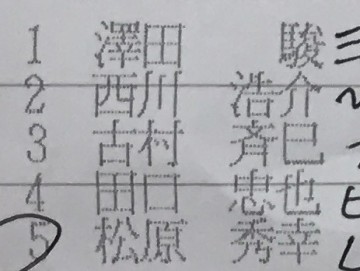 1 澤田 駿
2 西川 浩介
3 古村 斉巳
4 田口 忠也
5 松原 秀幸